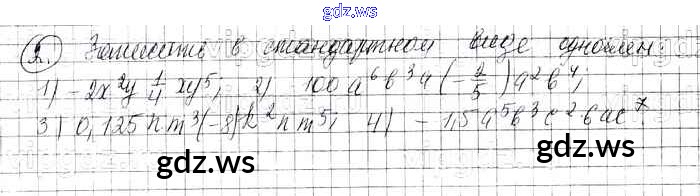 gdz.ws
2. Запишите в стандартном виде одночлен:
1) -2x²y 1/4 xy⁵; 2) 100 a⁶b³a(-2/5)a²b⁴;
3) 0,125 n m³(-8)k²n m⁵; 4) -1,5a⁵b³c²bac⁷
gdz.ws gdz.ws